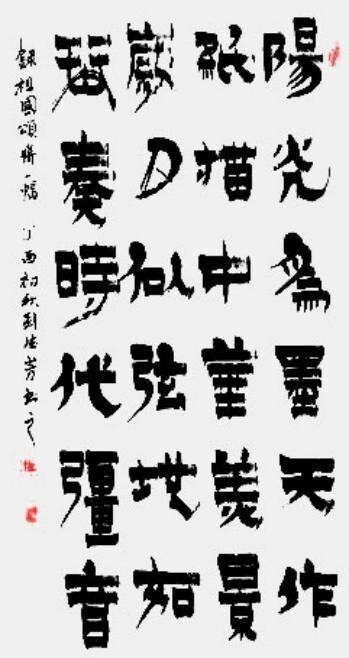 陽光為墨天作
紙描中華美景
歲月似弦地如
琴奏時代彊音
錄祖國頌聯一幅 丁酉初秋劉芳書之